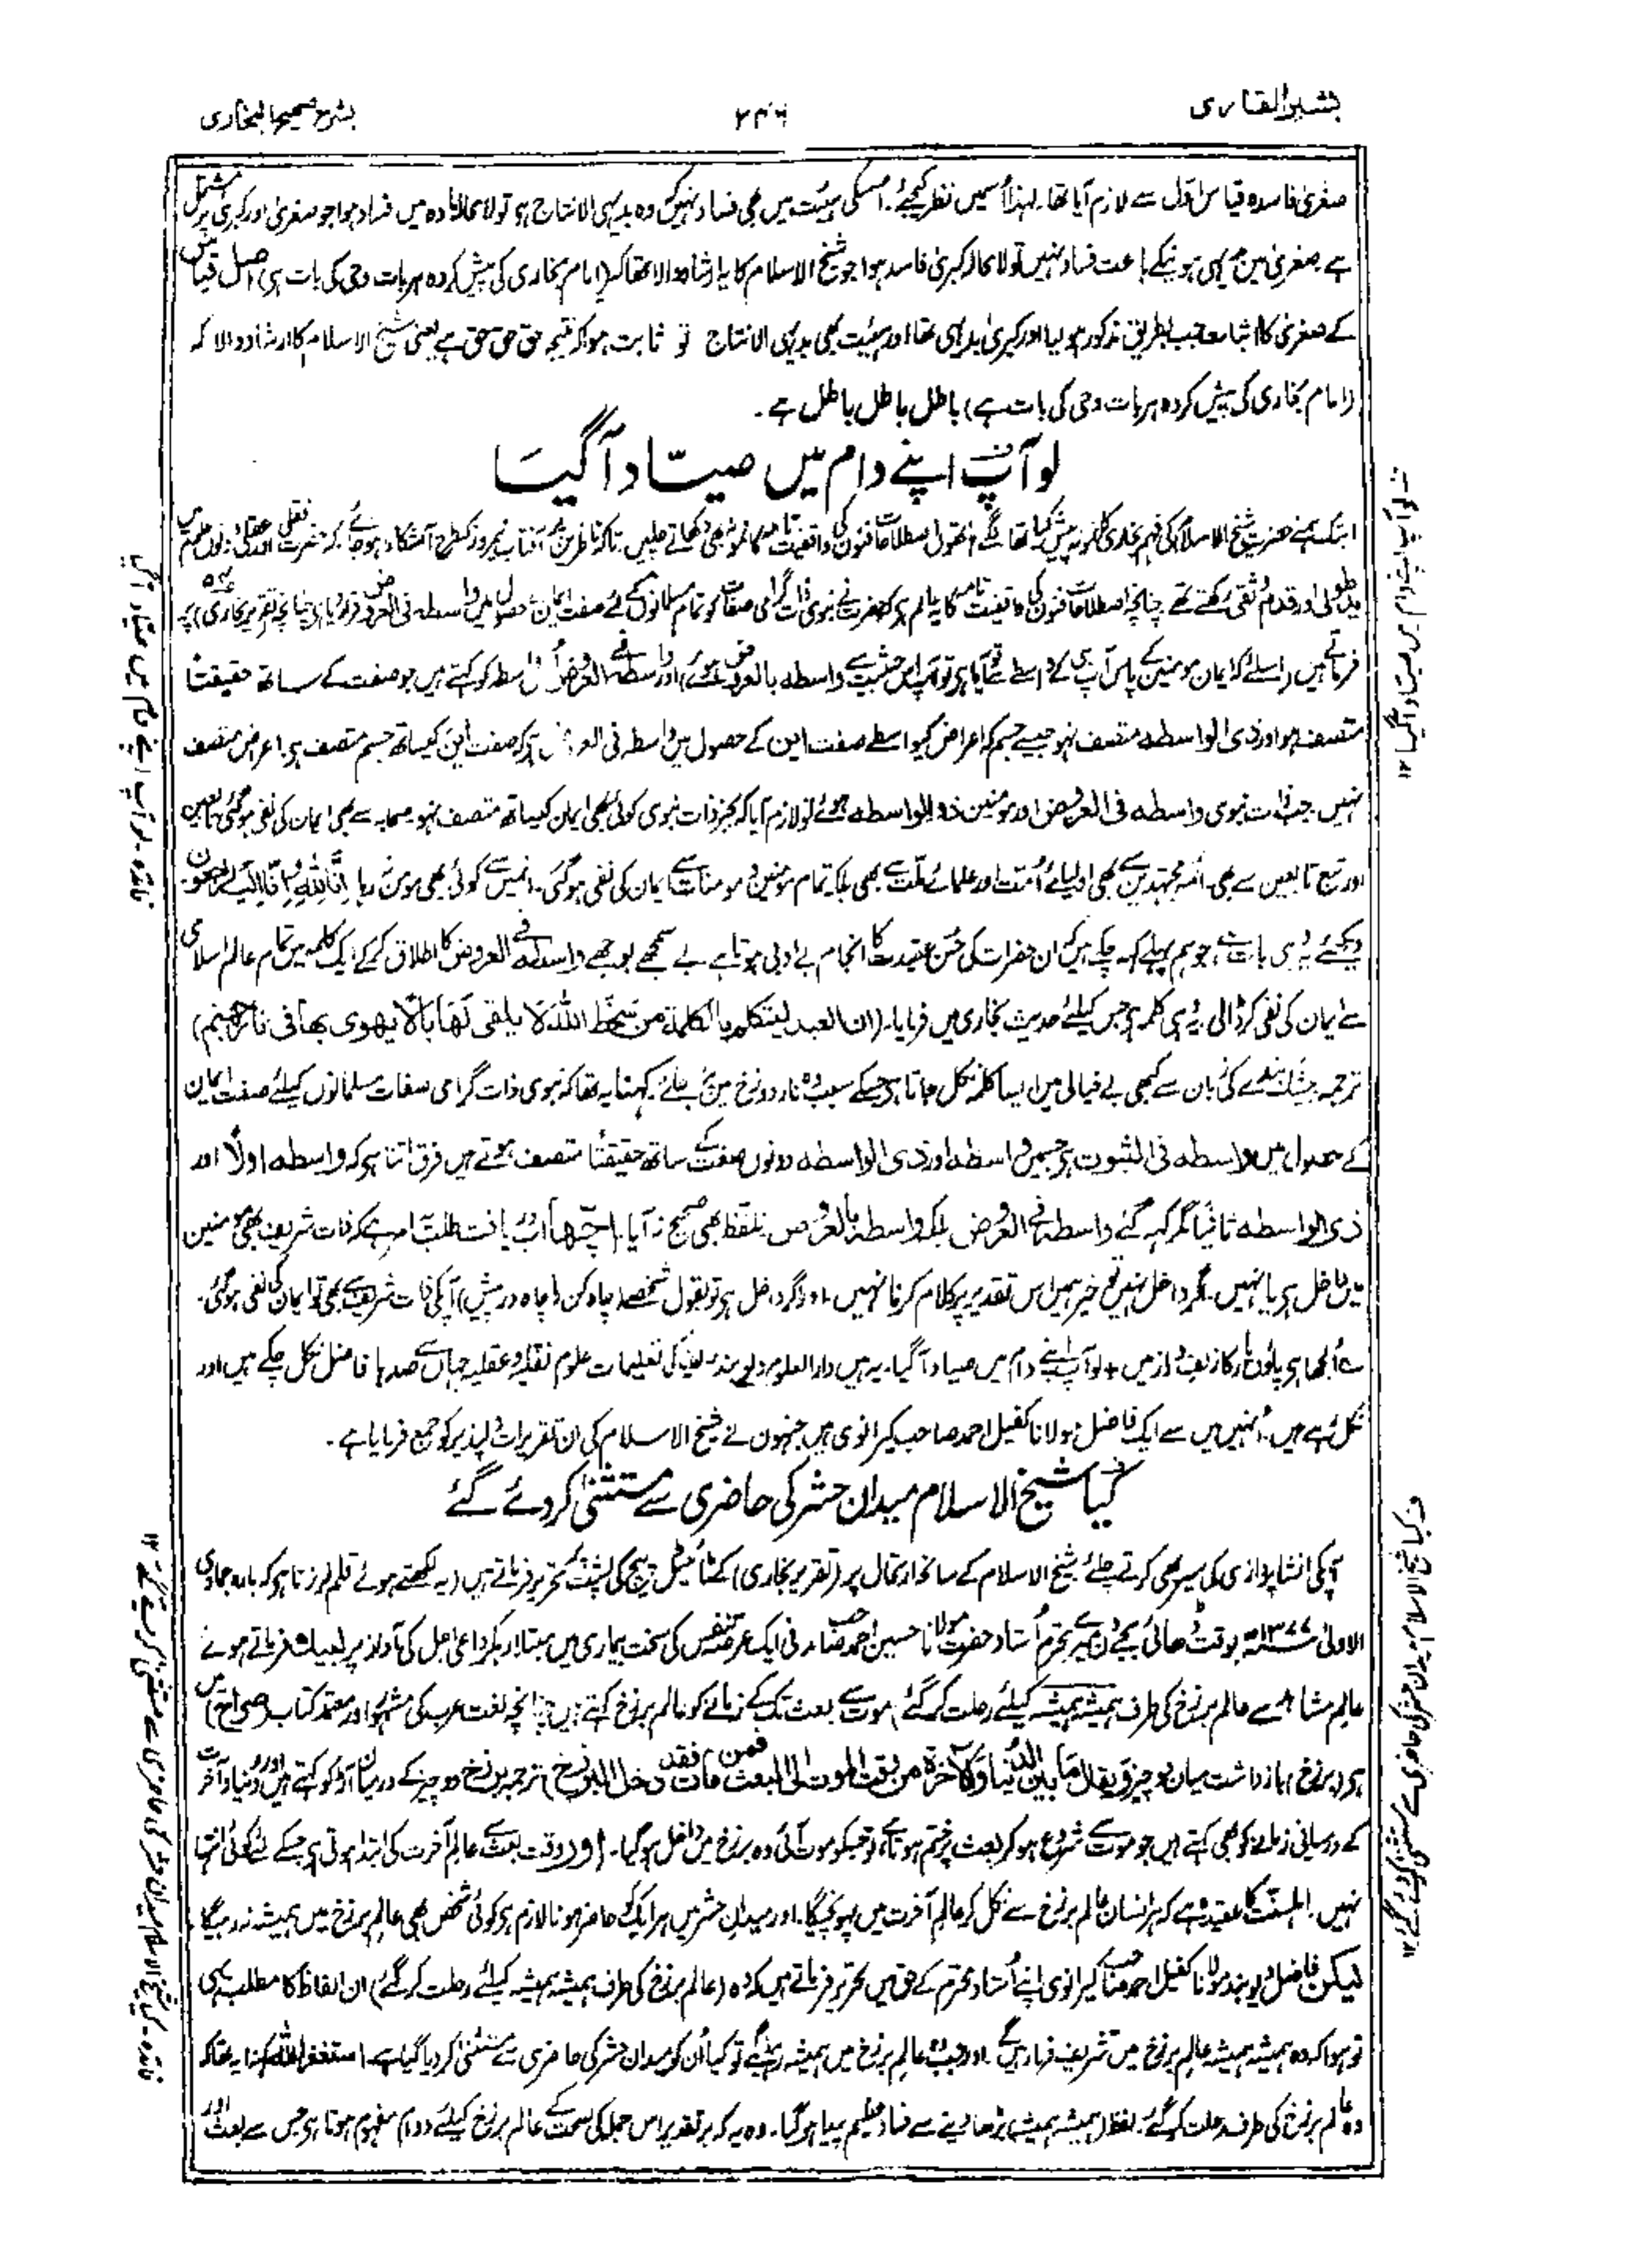 بشیر القاری
۲۴۶
بشرح صحیح البخاری
صغریٰ فاسدہ قیاس اول سے لازم آیا تھا۔ لہٰذا اسمیں نظر کیجئے۔ اسکی ہیئت میں بھی فساد نہیں کہ وہ بدیہی الانتاج ہی تو لامحالہ مادہ میں فساد ہوا جو صغریٰ اور کبریٰ پر مشتمل
ہے صغریٰ میں بدیہی ہونیکے باعث فساد نہیں تو لامحالہ کبریٰ فاسد ہوا جو شیخ الاسلام کا یہ ارشاد والا تھا کہ (امام بخاری کی پیش کردہ ہر بات وحی کی بات ہی) اصل قیاس
کے صغریٰ کا اثبات جب بطریق مذکور ہو لیا اور کبریٰ بدیہی تھا اور ہیئت بھی بدیہی الانتاج تو ثابت ہوا کہ نتیجہ حق حق حق ہے یعنی شیخ الاسلام کا ارشاد والا کہ
(امام بخاری کی پیش کردہ ہر بات وحی کی بات ہے) باطل باطل باطل ہے۔
لو آپ اپنے دام میں صیّاد آ گیا
ابتک ہمنے حضرت شیخ الاسلام کی فہم بخاری کا نمونہ پیش کیا تھا لگے ہاتھوں اصطلاحات فنون کی واقفیت تامہ کا نمونہ بھی دکھاتے چلیں۔ تاکہ ناظرین پر آفتاب نیمروز کیطرح آشکارا ہو جائے کہ حضرت نقلی اور عقلی دونوں علوم میں
ید طولیٰ اور قدم وثقیٰ رکھتے تھے چنانچہ اصطلاحات فنون کی واقفیت تامہ کا یہ عالم ہی کہ حضرت نے نبوی ذات گرامی صفات کو تمام مسلمانوں کے لئے صفت ایمان کے حصول میں واسطہ فی العروض قرار دیا ہی چنانچہ تقریر بخاری پر
فرماتے ہیں (اسلئے کہ ایمان مومنین کے پاس آپ ہی کے واسطے سے آیا ہی تو آپ اس حیثیت سے واسطہ بالعروض ہوئے) اور واسطہ فی العروض اُس واسطہ کو کہتے ہیں جو صفت کے ساتھ حقیقتاً
متصف ہو اور ذی الواسطہ متصف نہو جیسے جسم کہ اعراض کیواسطے صفت این کے حصول میں واسطہ فی العروض ہی کہ صفت این کیساتھ جسم متصف ہی اعراض متصف
نہیں۔ جب ذات نبوی واسطہ فی العروض اور مومنین ذو الواسطہ ہوئے تو لازم آیا کہ بجز ذات نبوی کوئی بھی ایمان کیساتھ متصف نہو۔ صحابہ سے بھی ایمان کی نفی ہو گئی تابعین
اور تبع تابعین سے بھی۔ ائمہ مجتہدین سے بھی اولیائے اُمت اور علمائے ملت سے بھی بلکہ تمام مومنین و مومنات سے ایمان کی نفی ہو گئی۔ انمیں سے کوئی بھی مومن نہ رہا اِنَّا لِلّٰہِ وَ اِنَّا اِلَیْہِ رَاجِعُوْنَ۔
دیکھئے یہ وہی بات ہے جو ہم پہلے کہہ چکے ہیں کہ ان حضرات کی حسن عقیدت کا انجام بے ادبی ہوتا ہے بے سمجھے بوجھے واسطہ فی العروض کا اطلاق کر کے ایک کلمہ میں تمام عالم اسلامی
سے ایمان کی نفی کر ڈالی یہ وہی کلمہ ہی جس کیلئے حدیث بخاری میں فرمایا۔ (ان العبد لیتکلم بالکلمۃ من سخط اللہ لا یلقی لھا بالا یھوی بھا فی نار جھنم)
ترجمہ بیشک بندے کی زبان سے کبھی بے خیالی میں ایسا کلمہ نکل جاتا ہی جسکے سبب وہ نار دوزخ میں جائے۔ کہنا یہ تھا کہ نبوی ذات گرامی صفات مسلمانوں کیلئے صفت ایمان
کے حصول میں واسطہ فی الثبوت ہی جسمیں واسطہ اور ذی الواسطہ دونوں صفت کے ساتھ حقیقتاً متصف ہوتے ہیں فرق اتنا ہی کہ واسطہ اولاً اور
ذی الواسطہ ثانیاً مگر کہہ گئے واسطہ فی العروض بلکہ واسطہ بالعروض۔ تلفظ بھی صحیح نہ آیا۔ اچھا اب یہ بات دریافت طلب امر ہے کہ ذات شریف بھی مومنین
میں داخل ہی یا نہیں۔ اگر داخل نہیں تو خیر ہمیں اس تقدیر پر کلام کرنا نہیں۔ اور اگر داخل ہی تو بقول شخصے (چاہ کن را چاہ در پیش) آپکی ذات شریف سے بھی تو ایمان کی نفی ہو گئی۔
ع اُلجھا ہی پاؤں یار کا زلف دراز میں + لو آپ اپنے دام میں صیاد آ گیا۔ یہ ہیں دار العلوم دیوبند کی تعلیمات علوم نقلیہ و عقلیہ جہاں سے صدہا فاضل نکل چکے ہیں اور
نکل رہے ہیں۔ اُنہیں میں سے ایک فاضل مولانا کفیل احمد صاحب کیرانوی ہیں جنہوں نے شیخ الاسلام کی ان تقریرات دلپذیر کو جمع فرمایا ہے۔
کیا شیخ الاسلام میدان حشر کی حاضری سے مستثنیٰ کر دئے گئے
آپکی انشا پردازی کی سیر بھی کرتے چلئے شیخ الاسلام کے سانحہ ارتحال پر (تقریر بخاری) کے ٹائیٹل پیج کی پشت پر تحریر فرماتے ہیں (یہ لکھتے ہوئے قلم لرزتا ہی کہ بارہ جمادی
الاولیٰ ۱۳۷۷ھ بوقت ڈھائی بجے دن میرے محترم اُستاد حضرت مولانا حسین احمد صاحب مدنی ایک عرصہ تنفس کی سخت بیماری میں مبتلا رہکر داعی اجل کی آواز پر لبیک فرماتے ہوئے
عالم مشاہدہ سے عالم برزخ کی طرف ہمیشہ ہمیشہ کیلئے رحلت کر گئے) موت سے بعث تک کے زمانے کو عالم برزخ کہتے ہیں چنانچہ لغت عرب کی مشہور اور معتمد کتاب (صراح) میں
ہی (برزخ) بازداشت میان دو چیز و یقال ما بین الدنیا والآخرۃ من وقت الموت الی البعث فمن مات فقد دخل البرزخ) ترجمہ برزخ دو چیز کے درمیان آڑ کو کہتے ہیں اور دنیا و آخرت
کے درمیانی زمانے کو بھی کہتے ہیں جو موت سے شروع ہو کر بعث پر ختم ہوتا ہے تو جسکو موت آئی وہ برزخ میں داخل ہو گیا۔ اور وقت بعث سے عالم آخرت کی ابتدا ہوتی ہی جسکے لئے کوئی انتہا
نہیں۔ اہلسنت کا عقیدہ ہے کہ ہر انسان عالم برزخ سے نکل کر عالم آخرت میں پہونچیگا۔ اور میدان حشر میں ہر ایک کو حاضر ہونا لازم ہی کوئی شخص بھی عالم برزخ میں ہمیشہ نہ رہیگا
لیکن فاضل دیوبند مولانا کفیل احمد صاحب کیرانوی اپنے اُستاد محترم کے حق میں تحریر فرماتے ہیں کہ وہ (عالم برزخ کی طرف ہمیشہ ہمیشہ کیلئے رحلت کر گئے) ان الفاظ کا مطلب یہی
تو ہوا کہ وہ ہمیشہ ہمیشہ عالم برزخ میں تشریف فرما رہیں گے۔ اور جب وہ عالم برزخ میں ہمیشہ رہینگے تو کیا اُن کو میدان حشر کی حاضری سے مستثنیٰ کر دیا گیا ہے۔ استغفر اللہ کہنا یہ تھا کہ
وہ عالم برزخ کی طرف رحلت کر گئے۔ لفظ (ہمیشہ ہمیشہ) بڑھا دینے سے فساد عظیم پیدا ہو گیا۔ وہ یہ کہ بر تقدیر اس جملہ کی صحت کے عالم برزخ کیلئے دوام مفہوم ہوتا ہی جس سے بعث اور
فائدہ۔ لو آپ اپنے دام میں صیاد آ گیا
فائدہ۔ کیا شیخ الاسلام میدان حشر کی حاضری سے مستثنیٰ کر دئے گئے ۱۲